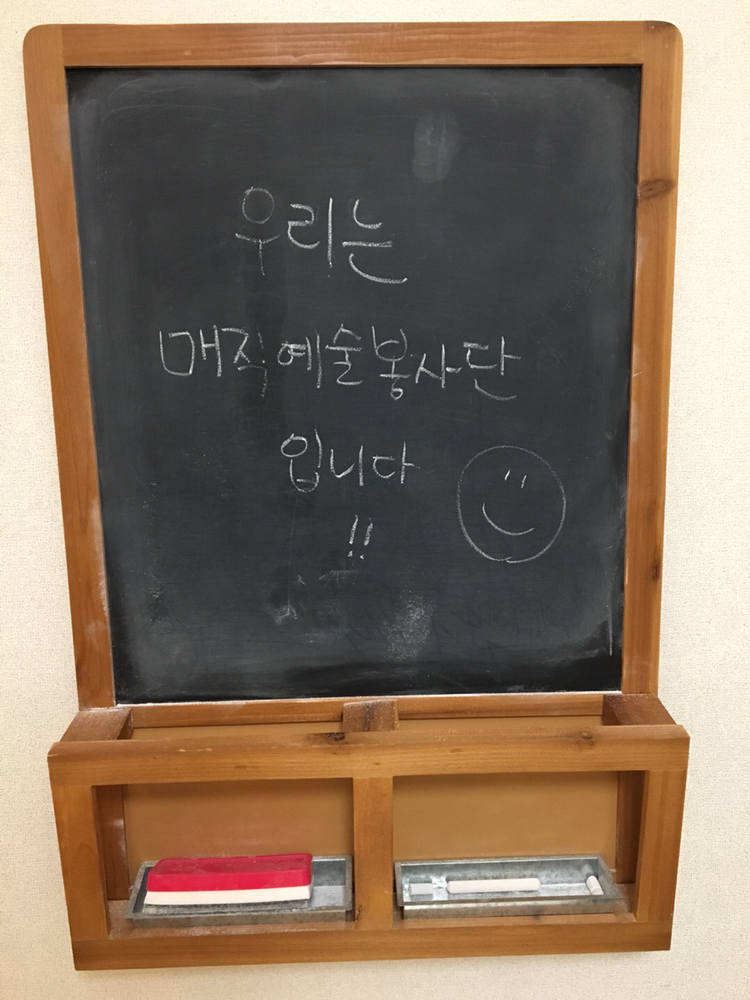 우리는
매직예술봉사단
입니다
!!